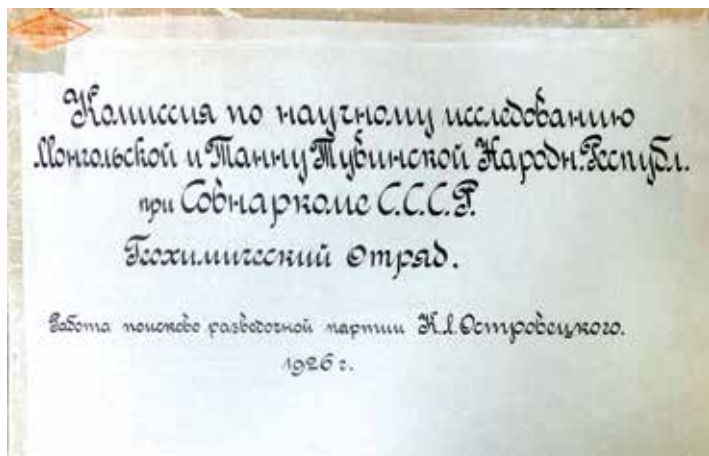 Комиссия по научному исследованию
Монгольской и Танну Тубинской Народн. Республ.
при Совнаркоме С.С.С.Р.
Геохимический Отряд.
Работа поисково разведочной партии Островецкого.
1926 г.